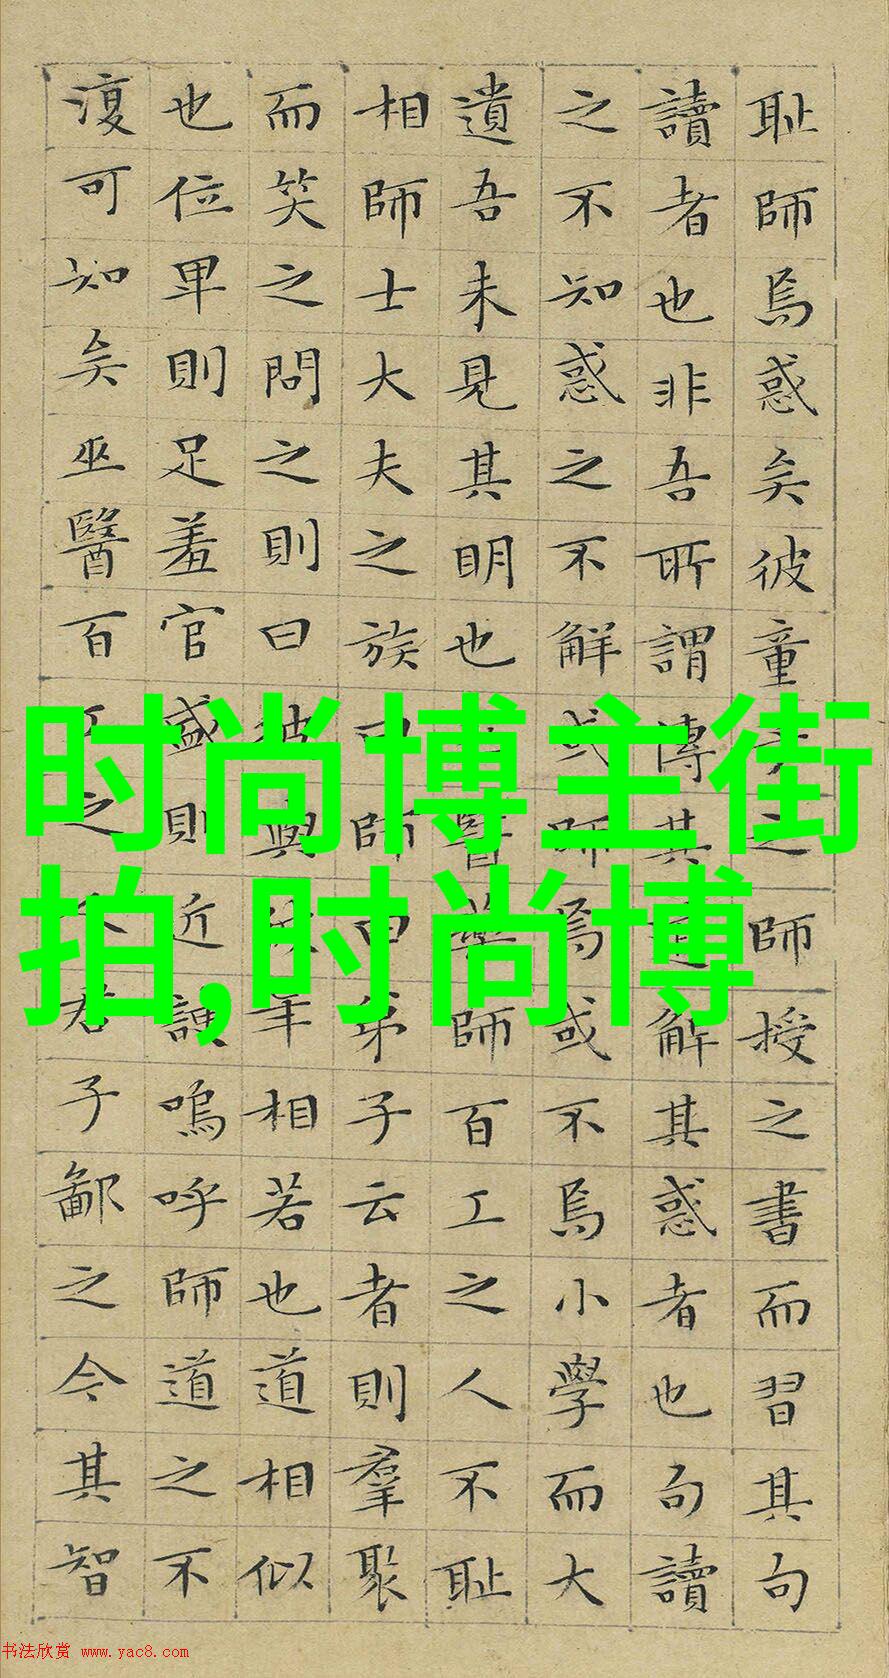 耻師焉惑矣彼童子之師授之書而習其句
讀者也非吾所謂傳其道解其惑者也句讀
之不知惑之不解或師焉或不焉小學而大
遺吾未見其明也醫師百工之人不耻
相師士大夫之族曰師曰弟子云者則羣聚
而笑之問之則曰彼與年相若也道相似
也位卑則足羞官盛則近諛嗚呼師道之不
復可知矣巫醫百工之君子鄙之今其智
时尚博主街
拍,时尚博
书法欣赏 www.yac8.com